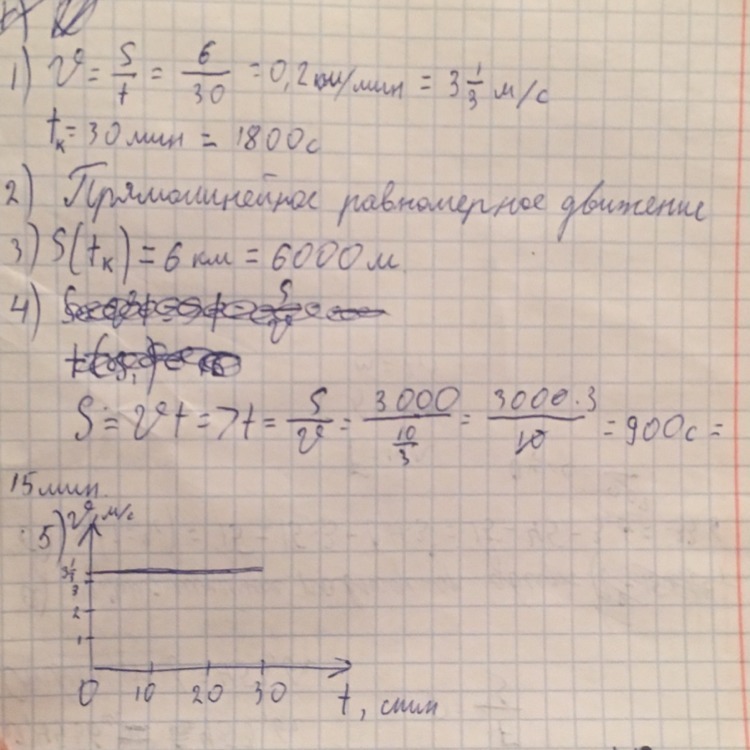 1) υ = S/t = 6/30 = 0,2 км/мин = 3 1/3 м/с
tк = 30 мин = 1800с
2) Прямолинейное равномерное движение
3) S(tк) = 6 км = 6000 м
4)
S = υt => t = S/υ = 3000/(10/3) = 3000·3/10 = 900с =
15 мин.
5) υ, м/с
3 1/3
3
2
1
0 10 20 30 t, мин